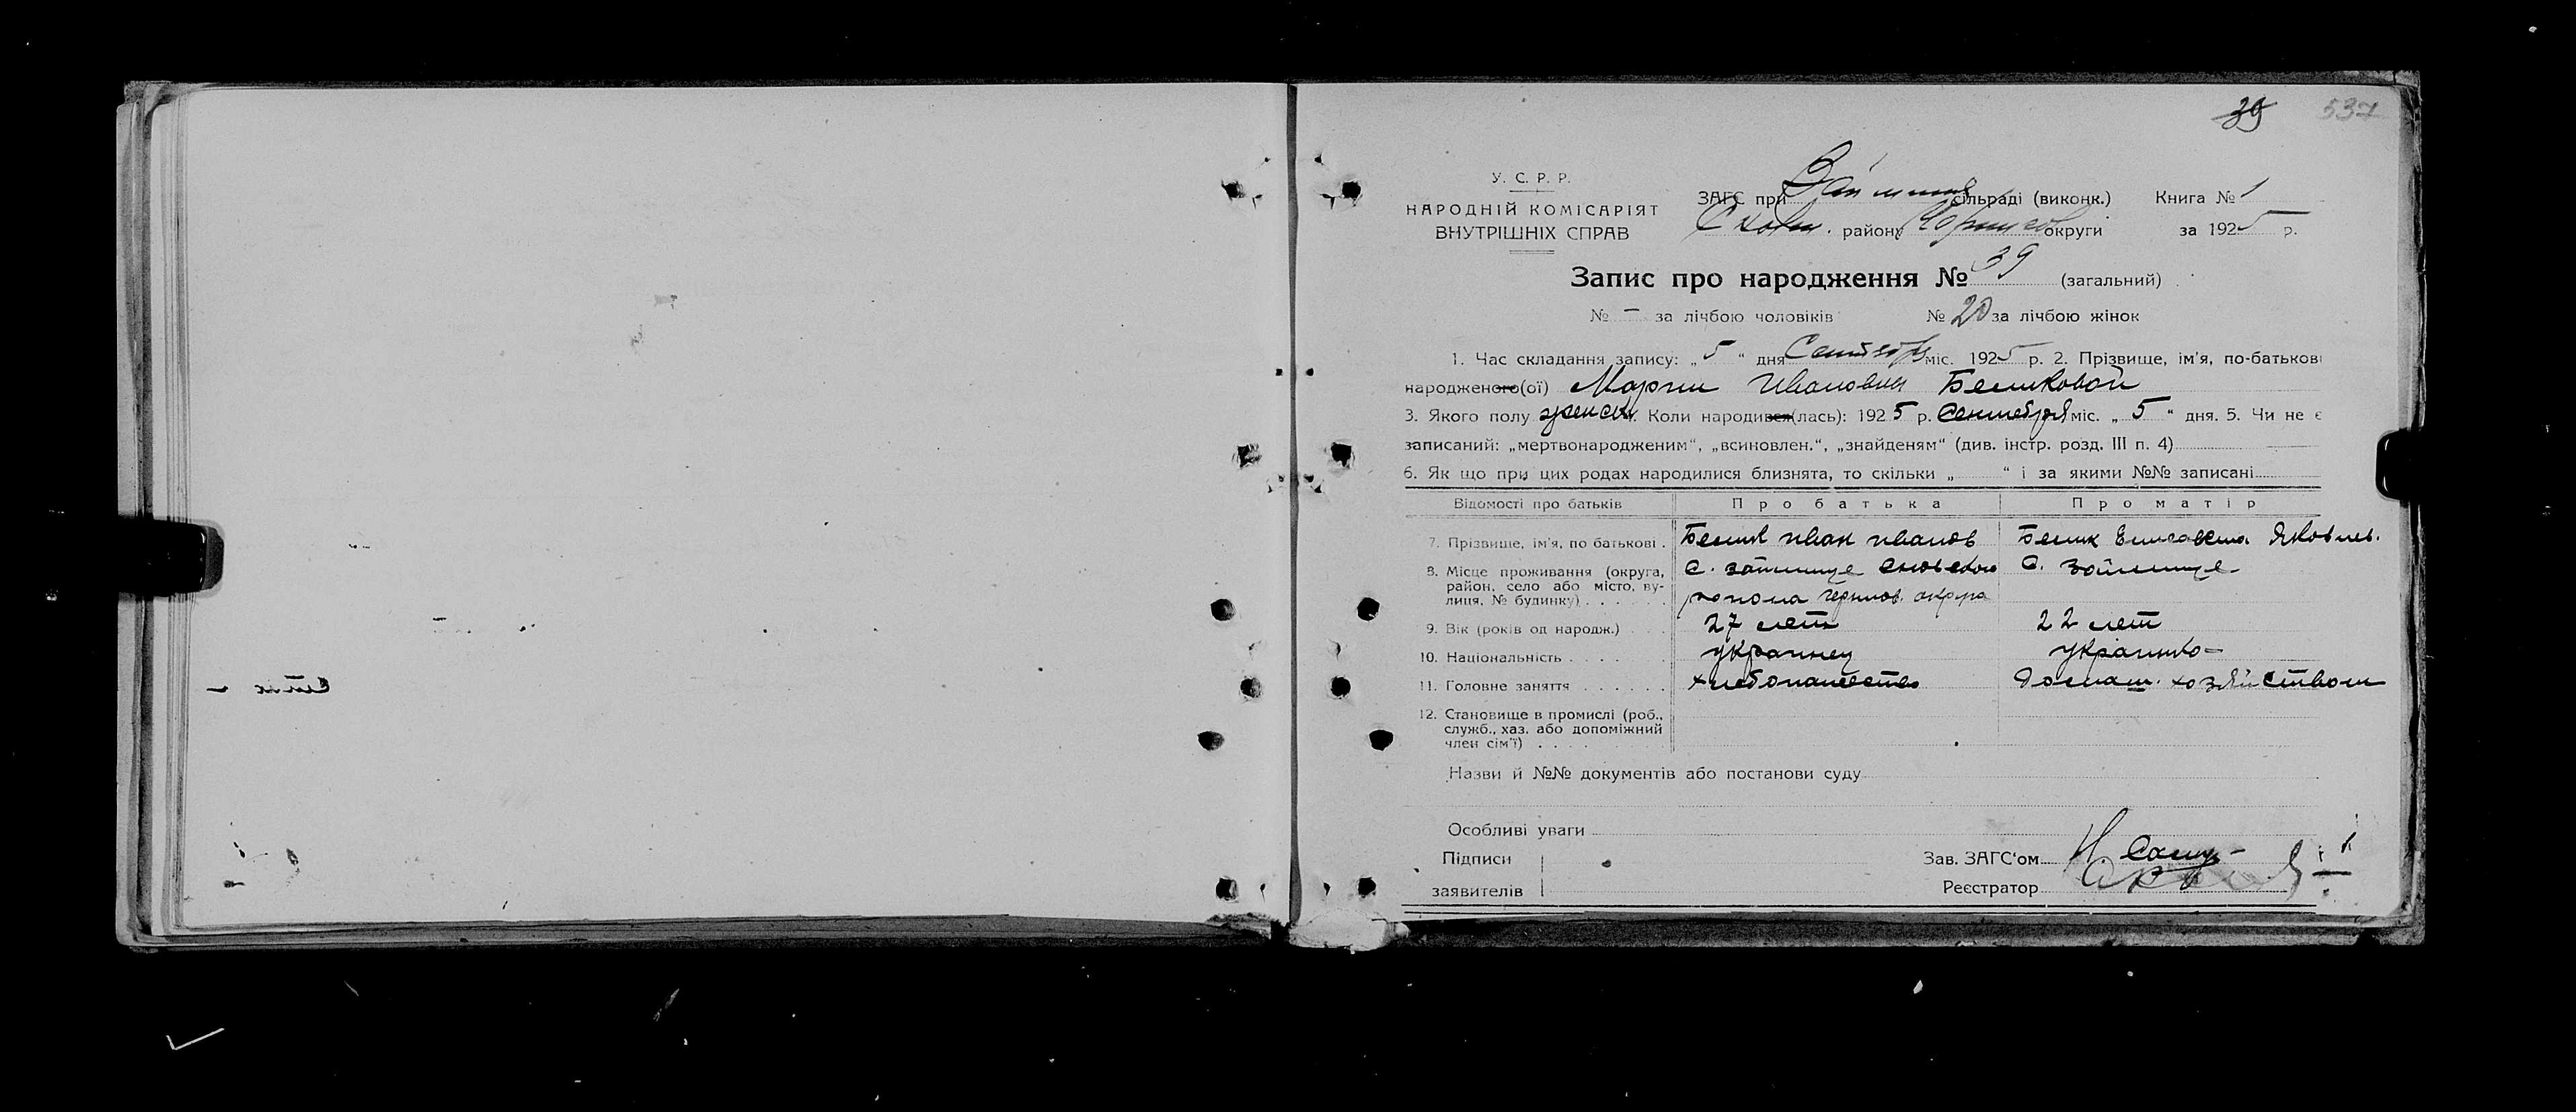 39 537
У. С. Р. Р.
НАРОДНІЙ КОМІСАРІЯТ
ВНУТРІШНІХ СПРАВ
ЗАГС при сільраді (виконк.) Книга № 1
району округи за 1925 р.
Запис про народження № 39 (загальний)
№ – за лічбою чоловіків № 20 за лічбою жінок
1. Час складання запису: „ 5 “ дня міс. 1925 р. 2. Прізвище, ім'я, по-батькові
народженого(ої) Марии Ивановны Беликовой
3. Якого полу женск. Коли народився(лась): 1925 р. Сентября міс. „ 5 “ дня. 5. Чи не є
записаний: „мертвонародженим“, „всиновлен.“, „знайденям“ (див. інстр. розд. III п. 4)
6. Як що при цих родах народилися близнята, то скільки „ “ і за якими №№ записані
Відомості про батьків Про батька Про матір
7. Прізвище, ім'я, по батькові . Белик Иван Иванов Белик Елисавета Яковлев.
8. Місце проживання (округа, район, село або місто, вулиця, № будинку) . . . . . с. Займище Сновского с. Займище
района Чернигов. округа
9. Вік (років од народж.) . . . 27 лет 22 лет
10. Національність . . . . . украинец украинка
11. Головне заняття . . . . . . хлебопашество Домаш. хозяйством
12. Становище в промислі (роб., служб., хаз. або допоміжний член сім'ї) . . . .
Назви й №№ документів або постанови суду
Особливі уваги
Підписи
заявителів
Зав. ЗАГС'ом
Реєстратор